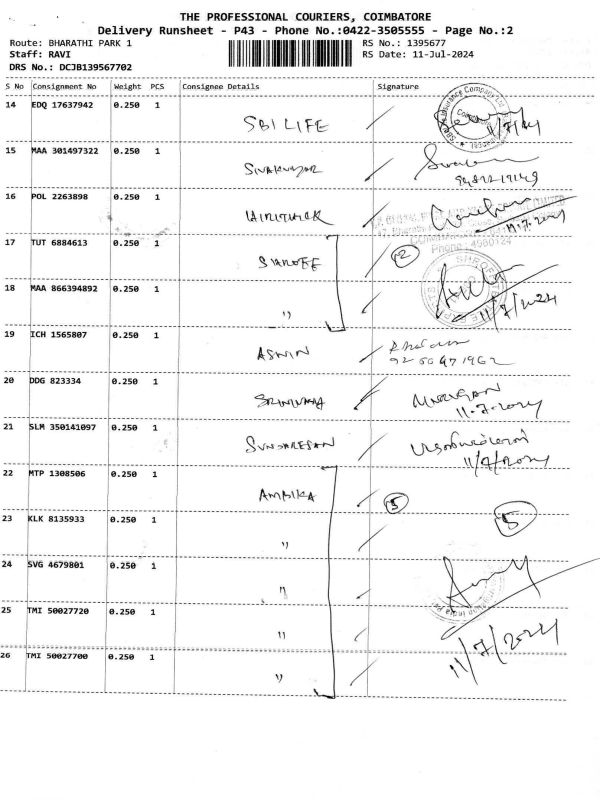 THE PROFESSIONAL COURIERS, COIMBATORE
Delivery Runsheet - P43 - Phone No.:0422-3505555 - Page No.:2
Route: BHARATHI PARK 1 RS No.: 1395677
Staff: RAVI RS Date: 11-Jul-2024
DRS No.: DCJB139567702
S No Consignment No Weight PCS Consignee Details Signature
14 EDQ 17637942 0.250 1 SBI LIFE 11/7/24
15 MAA 301497322 0.250 1 SIVAKUMAR
16 POL 2263898 0.250 1 11.7.2024
Phone: 4980124
17 TUT 6884613 0.250 1 SHROFF 2
18 MAA 866394892 0.250 1 " 11/7/2024
19 ICH 1565807 0.250 1 ASWIN
20 DDG 823334 0.250 1 SRINIVASA MURUGAN
11.7.2024
21 SLM 350141097 0.250 1 SUNDARESAN
11/7/2024
22 MTP 1308506 0.250 1 AMBIKA 5
23 KLK 8135933 0.250 1 " 5
24 SVG 4679801 0.250 1 "
25 TMI 50027720 0.250 1 "
26 TMI 50027700 0.250 1 " 11/7/2024